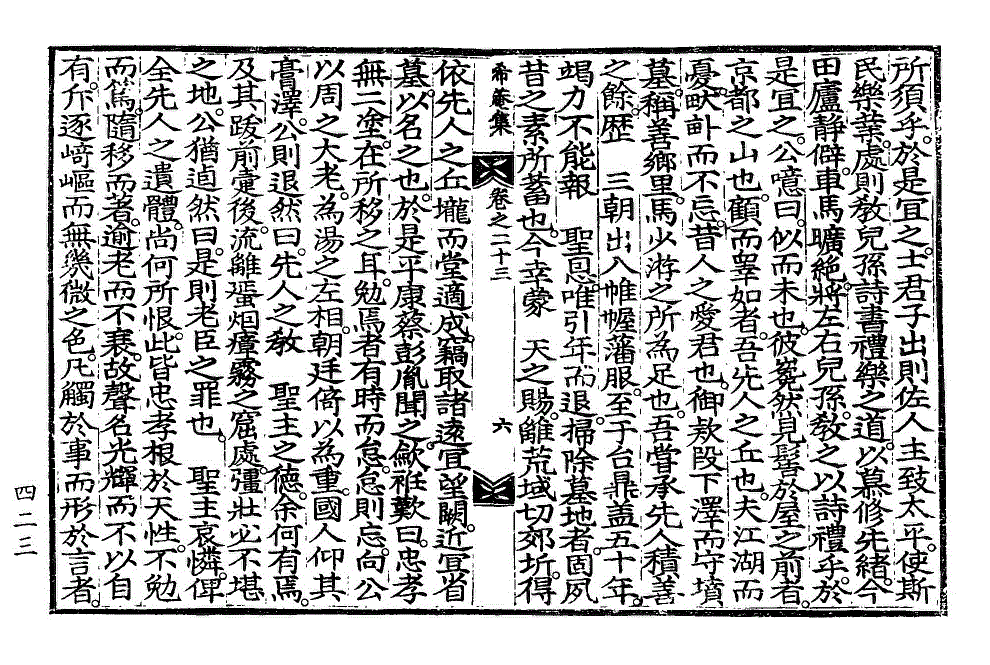 所須乎於是宜之士君子出則佐人主致太平使斯
民樂業處則教兒孫詩書禮樂之道以慕修先緒今
田廬靜僻車馬曠絶將左右兒孫教之以詩禮乎於
是宜之公噫曰似而未也彼巍然見髻於屋之前者
京都之山也顧而睪如者吾先人之丘也夫江湖而
憂畎畝而不忘昔人之愛君也御欵段下澤而守墳
墓稱善鄉里馬少游之所為足也吾嘗承先人積善
之餘歷 三朝出入帷幄藩服至于台鼎盖五十年
竭力不能報 聖恩唯引年而退掃除墓地者固夙
昔之素所蓄也今幸蒙 天之賜離荒域切郊圻得
希菴集 卷之二十三 六
依先人之丘壠而堂適成竊取諸遠宜望闕近宜省
墓以名之也於是平康蔡彭胤聞之歛袵歎曰忠孝
無二塗在所移之耳勉焉者有時而怠怠則忘向公
以周之大老為湯之左相朝廷倚以為重國人仰其
膏澤公則退然曰先人之教 聖主之德余何有焉
及其跋前疐後流離蜑烟瘴霧之窟處彊壯必不堪
之地公猶逌然曰是則老臣之罪也 聖主哀憐俾
全先人之遺體尚何所恨此皆忠孝根於天性不勉
而篤隨移而著逾老而不衰故聲名光輝而不以自
有斥逐﨑嶇而無幾微之色凡觸於事而形於言者
四二三